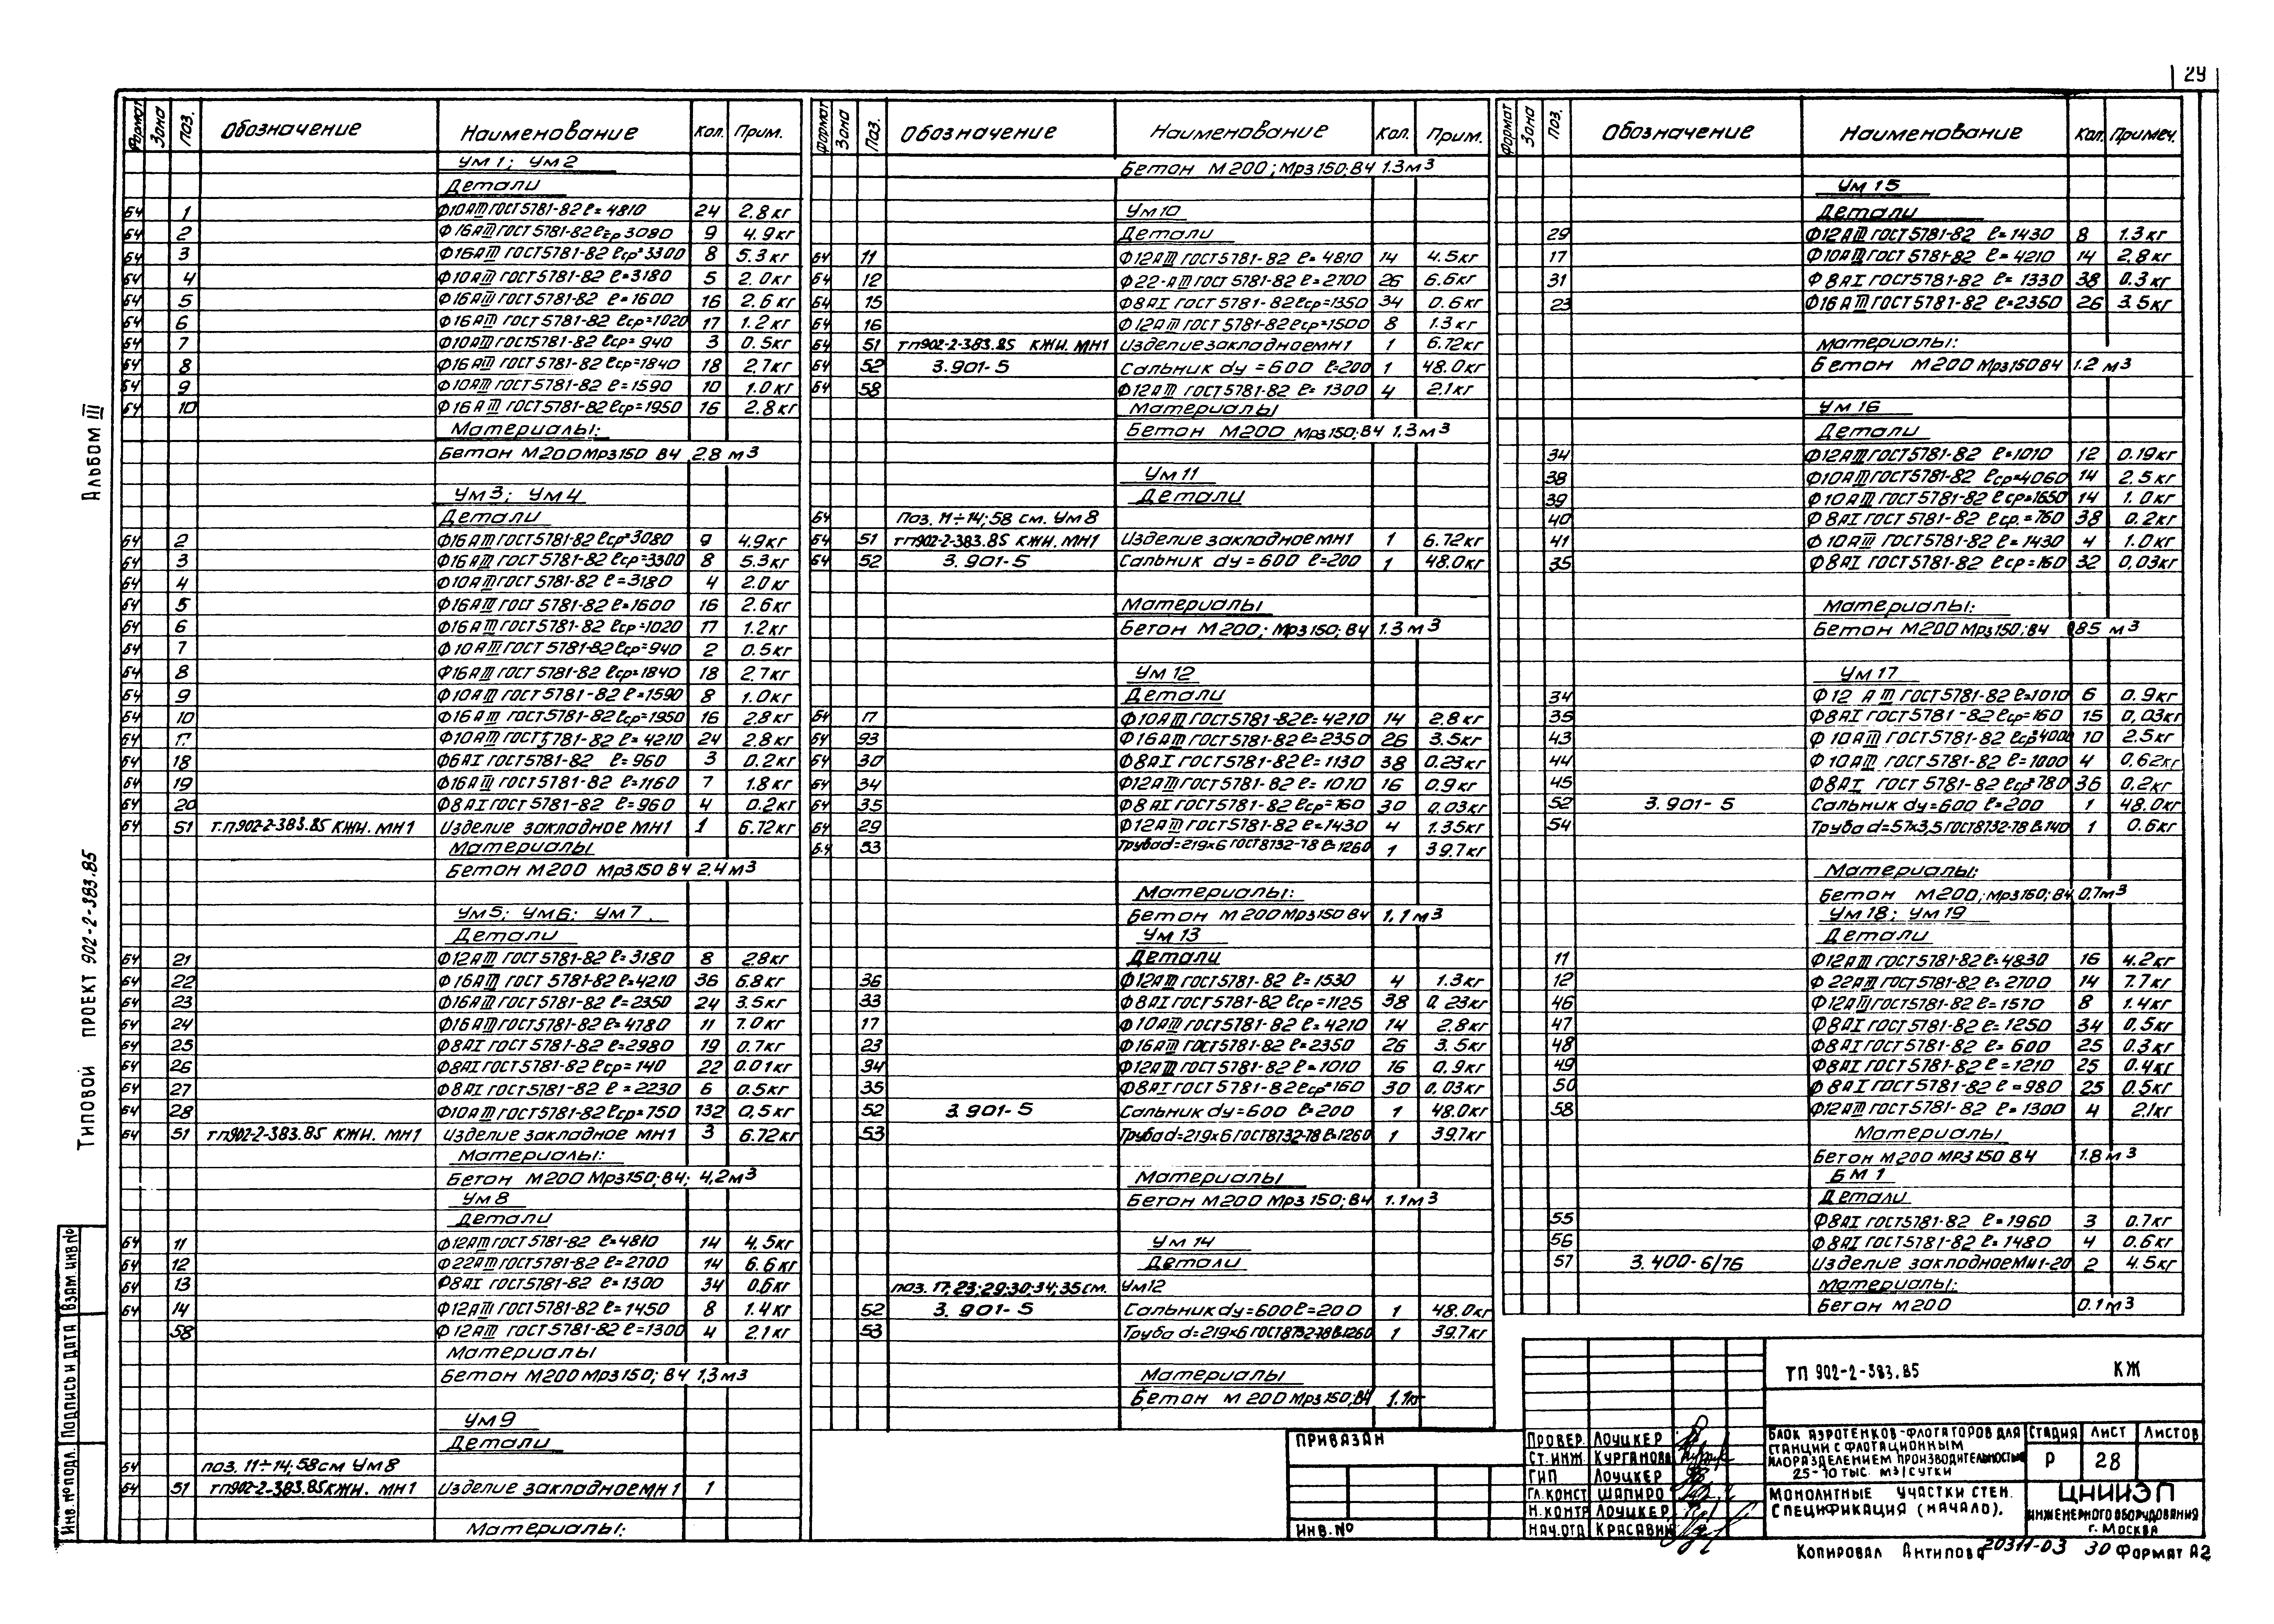 29
Альбом III
Типовой проект 902-2-383.85
Взам. инв №
Подпись и дата
Инв. № подл.
Формат Зона Поз. Обозначение Наименование Кол. Прим.
Ум 1; Ум 2
Детали
БЧ 1 Ф10АIII ГОСТ5781-82 ℓ=4810 24 2.8кг
БЧ 2 Ф16АIII ГОСТ5781-82 ℓср 3080 9 4.9кг
БЧ 3 Ф16АIII ГОСТ5781-82 ℓср=3300 8 5.3кг
БЧ 4 Ф10АIII ГОСТ5781-82 ℓ=3180 5 2.0кг
БЧ 5 Ф16АIII ГОСТ5781-82 ℓ=1600 16 2.6кг
БЧ 6 Ф16АIII ГОСТ5781-82 ℓср=1020 17 1.2кг
БЧ 7 Ф10АIII ГОСТ5781-82 ℓср=940 3 0.5кг
БЧ 8 Ф16АIII ГОСТ5781-82 ℓср=1840 18 2.7кг
БЧ 9 Ф10АIII ГОСТ5781-82 ℓ=1590 10 1.0кг
БЧ 10 Ф16АIII ГОСТ5781-82 ℓср=1950 16 2.8кг
Материалы:
Бетон М200 Мрз150 В4 2.8 м3
Ум3; Ум4
Детали
БЧ 2 Ф16АIII ГОСТ5781-82 ℓср=3080 9 4.9кг
БЧ 3 Ф16АIII ГОСТ5781-82 ℓср=3300 8 5.3кг
БЧ 4 Ф10АIII ГОСТ5781-82 ℓ=3180 4 2.0кг
БЧ 5 Ф16АIII ГОСТ5781-82 ℓ=1600 16 2.6кг
БЧ 6 Ф16АIII ГОСТ5781-82 ℓср=1020 17 1.2кг
БЧ 7 Ф10АIII ГОСТ5781-82 ℓср=940 2 0.5кг
БЧ 8 Ф16АIII ГОСТ5781-82 ℓср=1840 18 2.7кг
БЧ 9 Ф10АIII ГОСТ5781-82 ℓ=1590 8 1.0кг
БЧ 10 Ф16АIII ГОСТ5781-82 ℓср=1950 16 2.8кг
БЧ 17 Ф10АIII ГОСТ5781-82 ℓ=4210 24 2.8кг
БЧ 18 Ф6АI ГОСТ5781-82 ℓ=960 3 0.2кг
БЧ 19 Ф16АIII ГОСТ5781-82 ℓ=1160 7 1.8кг
БЧ 20 Ф8АI ГОСТ5781-82 ℓ=960 4 0.2кг
БЧ 51 т.п902-2-383.85 КЖИ. МН1 Изделие закладное МН1 1 6.72кг
Материалы
Бетон М200 Мрз150 В4 2.4м3
Ум5; Ум6; Ум7.
Детали
БЧ 21 Ф12АIII ГОСТ5781-82 ℓ=3180 8 2.8кг
БЧ 22 Ф16АIII ГОСТ5781-82 ℓ=4210 36 6.8кг
БЧ 23 Ф16АIII ГОСТ5781-82 ℓ=2350 24 3.5кг
БЧ 24 Ф16АIII ГОСТ5781-82 ℓ=4780 11 7.0кг
БЧ 25 Ф8АI ГОСТ5781-82 ℓ=2980 19 0.7кг
БЧ 26 Ф8АI ГОСТ5781-82 ℓср=140 22 0.01кг
БЧ 27 Ф8АI ГОСТ5781-82 ℓ=2230 6 0.5кг
БЧ 28 Ф10АIII ГОСТ5781-82 ℓср=750 132 0,5кг
БЧ 51 тп902-2-383.85 КЖИ. МН1 Изделие закладное МН1 3 6.72кг
Материалы:
Бетон М200 Мрз150; В4; 4,2м3
Ум8
Детали
БЧ 11 Ф12АIII ГОСТ5781-82 ℓ=4810 14 4.5кг
БЧ 12 Ф22АIII ГОСТ5781-82 ℓ=2700 14 6.6кг
БЧ 13 Ф8АI ГОСТ5781-82 ℓ=1300 34 0.6кг
БЧ 14 Ф12АIII ГОСТ5781-82 ℓ=1450 8 1.4кг
58 Ф12АIII ГОСТ5781-82 ℓ=1300 4 2.1кг
Материалы
Бетон М200 Мрз150; В4 1,3м3
Ум9
Детали
БЧ поз. 11÷14; 58см Ум8
БЧ 51 тп902-2-383.85КЖИ. МН1 Изделие закладное МН1 1
Материалы:
Формат Зона Поз. Обозначение Наименование Кол. Прим.
Бетон М200; Мрз150; В4 1.3м3
Ум10
Детали
БЧ 11 Ф12АIII ГОСТ5781-82 ℓ=4810 14 4.5кг
БЧ 12 Ф22-АIII ГОСТ5781-82 ℓ=2700 26 6.6кг
БЧ 15 Ф8АI ГОСТ5781-82 ℓср=1350 34 0.6кг
БЧ 16 Ф12АIII ГОСТ5781-82 ℓср=1500 8 1.3кг
БЧ 51 тп902-2-383.85 КЖИ. МН1 Изделие закладное МН1 1 6.72кг
БЧ 52 3.901-5 Сальник dу=600 ℓ=200 1 48.0кг
БЧ 58 Ф12АIII ГОСТ5781-82 ℓ=1300 4 2.1кг
Материалы
Бетон М200 Мрз150; В4 1.3м3
Ум11
Детали
БЧ поз. 11÷14; 58 см. Ум8
БЧ 51 тп902-2-383.85 КЖИ. МН1 Изделие закладное МН1 1 6.72кг
БЧ 52 3.901-5 Сальник dу=600 ℓ=200 1 48.0кг
Материалы
Бетон М200; Мрз150; В4 1.3м3
Ум 12
Детали
БЧ 17 Ф10АIII ГОСТ5781-82 ℓ=4210 14 2.8кг
БЧ 93 Ф16АIII ГОСТ5781-82 ℓ=2350 26 3.5кг
БЧ 30 Ф8АI ГОСТ5781-82 ℓ=1130 38 0.23кг
БЧ 34 Ф12АIII ГОСТ5781-82 ℓ=1010 16 0.9кг
БЧ 35 Ф8АI ГОСТ5781-82 ℓср=160 30 0.03кг
БЧ 29 Ф12АIII ГОСТ5781-82 ℓ=1430 4 1.35кг
БЧ 53 Труба d=219х6 ГОСТ8732-78 ℓ=1260 1 39.7кг
Материалы:
Бетон М200 Мрз150 В4 1.1м3
Ум 13
Детали
36 Ф12АIII ГОСТ5781-82 ℓ=1530 4 1.3кг
33 Ф8АI ГОСТ5781-82 ℓср=1125 38 0.23кг
17 Ф10АIII ГОСТ5781-82 ℓ=4210 14 2.8кг
23 Ф16АIII ГОСТ5781-82 ℓ=2350 26 3.5кг
34 Ф12АIII ГОСТ5781-82 ℓ=1010 16 0.9кг
35 Ф8АI ГОСТ5781-82 ℓср=160 30 0.03кг
52 3.901-5 Сальник dу=600 ℓ=200 1 48.0кг
53 Труба d=219х6 ГОСТ8732-78 ℓ=1260 1 39.7кг
Материалы
Бетон М200 Мрз150; В4 1.1м3
Ум 14
Детали
поз. 17;23;29;30;34;35см. Ум12
52 3.901-5 Сальник dу=600 ℓ=200 1 48.0кг
53 Труба d=219х6 ГОСТ8732-78 ℓ=1260 1 39.7кг
Материалы
Бетон М200 Мрз150; В4
Формат Зона Поз. Обозначение Наименование Кол. Примеч.
Ум 15
Детали
29 Ф12АIII ГОСТ5781-82 ℓ=1430 8 1.3кг
17 Ф10АIII ГОСТ5781-82 ℓ=4210 14 2.8кг
31 Ф8АI ГОСТ5781-82 ℓ=1330 38 0.3кг
23 Ф16АIII ГОСТ5781-82 ℓ=2350 26 3.5кг
Материалы:
Бетон М200 Мрз150 В4 1.2 м3
Ум 16
Детали
34 Ф12АIII ГОСТ5781-82 ℓ=1010 12 0.19кг
38 Ф10АIII ГОСТ5781-82 ℓср=4060 14 2.5кг
39 Ф10АIII ГОСТ5781-82 ℓср=1650 14 1.0кг
40 Ф8АI ГОСТ5781-82 ℓср.=760 38 0.2кг
41 Ф10АIII ГОСТ5781-82 ℓ=1430 4 1.0кг
35 Ф8АI ГОСТ5781-82 ℓср=160 32 0,03кг
Материалы:
Бетон М200 Мрз150; В4 0.85 м3
Ум 17
34 Ф12 АIII ГОСТ5781-82 ℓ=1010 6 0.9кг
35 Ф8АI ГОСТ5781-82 ℓср=160 15 0,03кг
43 Ф10АIII ГОСТ5781-82 ℓср=4000 10 2.5кг
44 Ф10АIII ГОСТ5781-82 ℓ=1000 4 0.62кг
45 Ф8АI ГОСТ5781-82 ℓср=780 36 0.2кг
52 3.901-5 Сальник dу=600 ℓ=200 1 48.0кг
54 Труба d=57х3,5 ГОСТ8732-78 ℓ=140 1 0.6кг
Материалы:
Бетон М200; Мрз150; В4 0.7м3
Ум 18; Ум 19
Детали
11 Ф12АIII ГОСТ5781-82 ℓ=4830 16 4.2кг
12 Ф22АIII ГОСТ5781-82 ℓ=2700 14 7.7кг
46 Ф12АIII ГОСТ5781-82 ℓ=1570 8 1.4кг
47 Ф8АI ГОСТ5781-82 ℓ=1250 34 0,5кг
48 Ф8АI ГОСТ5781-82 ℓ=600 25 0.3кг
49 Ф8АI ГОСТ5781-82 ℓ=1210 25 0.4кг
50 Ф8АI ГОСТ5781-82 ℓ=980 25 0.5кг
58 Ф12АIII ГОСТ5781-82 ℓ=1300 4 2.1кг
Материалы
Бетон М200 Мрз150 В4 1.8м3
БМ 1
Детали
55 Ф8АI ГОСТ5781-82 ℓ=1960 3 0.7кг
56 Ф8АI ГОСТ5781-82 ℓ=1480 4 0.6кг
57 3.400-6/76 Изделие закладное МН1-20 2 4.5кг
Материалы:
Бетон М200 0.1м3
Привязан
Инв. №
ТП 902-2-383.85 КЖ
Провер. Лоуцкер
Ст. инж. Курганова
ГИП Лоуцкер
Гл. конст Шапиро
Н. контр Лоуцкер
Нач. отд Красавин
Блок аэротенков-флотаторов для
станции с флотационным
илоразделением производительностью
25-70 тыс. м3/сутки
Стадия Лист Листов
Р 28
Монолитные участки стен.
Спецификация (начало).
ЦНИИЭП
инженерного оборудования
г. Москва
Копировал Антипова 20311-03 30 Формат А2